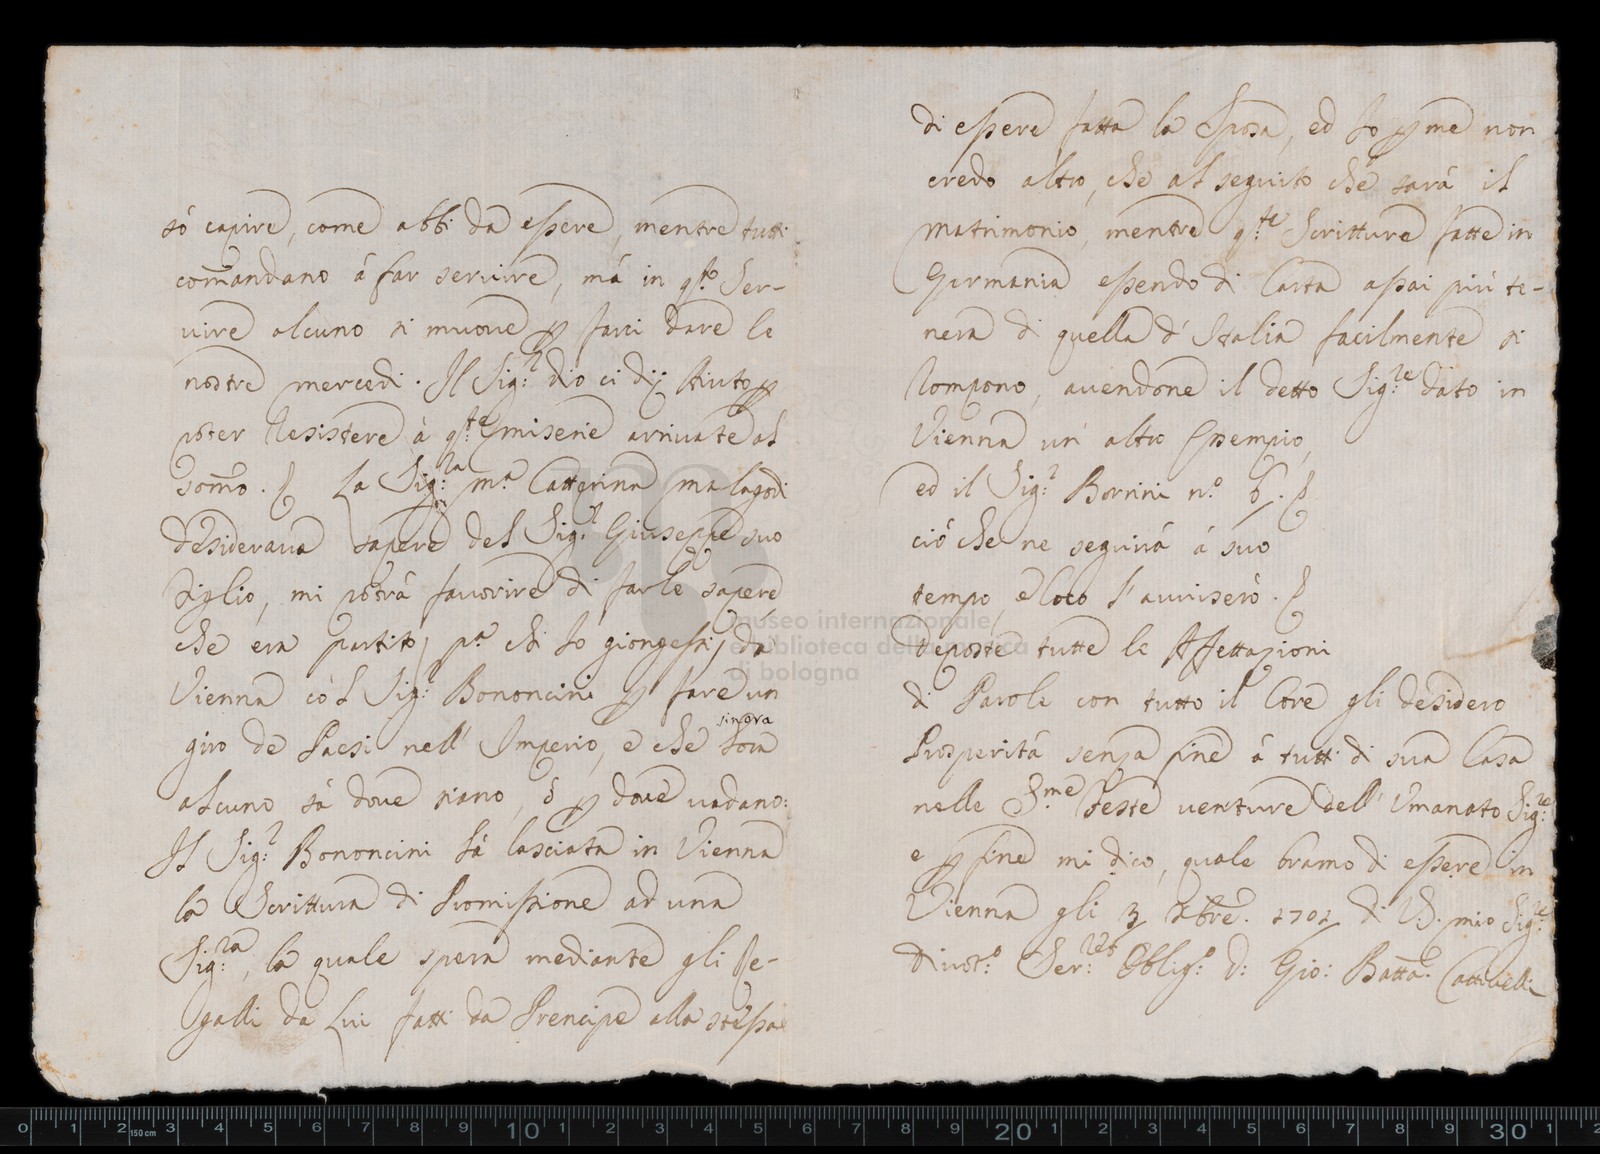 só capire, come abbi da essere, mentre tutti
comandano á far servire, má in q.to Ser-
vire alcuno si muove p farci dare le
nostre mercedi. Il Sig.r dio ci dij Aiuto p
poter Resistere à q.te miserie arrivate al
somo. La Sig.ra m.a Catterina malagodi
desiderava sapere del Sig.r Giuseppe suo
Figlio, mi potrá favorire di farle sapere
che era partito, p.a ch' Io giongessi, da
Vienna có'l Sig.r Bononcini p fare un
giro de Paesi nell' Imperio, e che
sinora
alcuno sá dove siano, ó p dove vadano:
Il Sig.r Bononcini há lasciata in Vienna
la Scrittura di Promissione ad una
Sig.ra, la quale spera mediante gli Re-
galli da Lui fatti da Prencipe alla stessa
di essere fatta la Sposa, ed Io p me non
credo altro, che al seguito che sará il
Matrimonio, mentre q.te Scritture fatte in
Germania essendo di Carta assai piú te-
nera di quella d' Italia facilmente si
Rompono, avendone il detto Sig.re dato in
Vienna un' altro Essempio,
ed il Sig.r Bornini n.o 6.
ció che ne seguirá á suo
tempo, e loco l' avviseró.
Deposte tutte le Affettazioni
di Parole con tutto il Core gli desidero
Prosperitá senza fine á tutti di sua Casa
nelle S.me Feste venture dell' Umanato Sig.re
e p fine mi dico, quale bramo di essere in
Vienna gli 3 Xbre. 1702 di VS. mio Sig.re
Divot.o Ser.re Obblig.o D: Gio: Batta. Cattivelli
museo internazionale
e biblioteca della musica
di bologna
0 1 2 150 cm 3 4 5 6 7 8 9 10 1 2 3 4 5 6 7 8 9 20 1 2 3 4 5 6 7 8 9 30 1 2